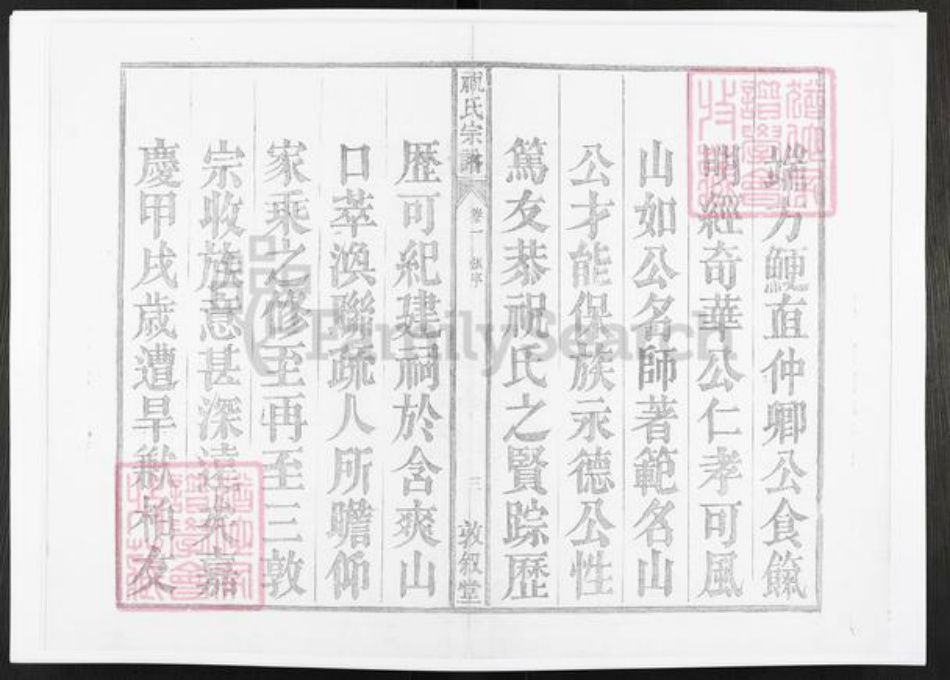 端方鯁直仲卿公食餼
明經奇華公仁孝可風
山如公名師著範名山
公才能保族永德公性
篤友恭祝氏之賢踪歷
祝氏宗譜
卷一 張序
三
敦敘堂
歷可紀建祠於含爽山
口萃渙聯疏人所瞻仰
家乘之修至再至三敦
宗收族意甚深遠矣嘉
慶甲戌歲遭旱歉柏友
FamilySearch